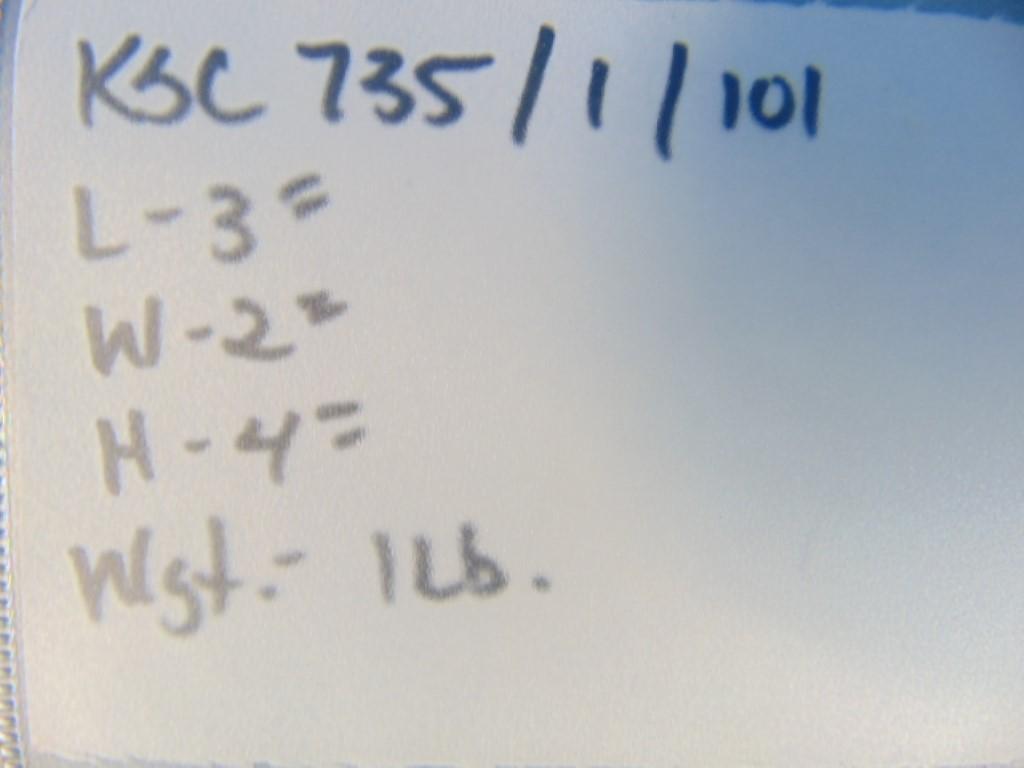 KSC 735/1/101
L-3"
W-2"
H-4"
Wgt.- 1Lb.